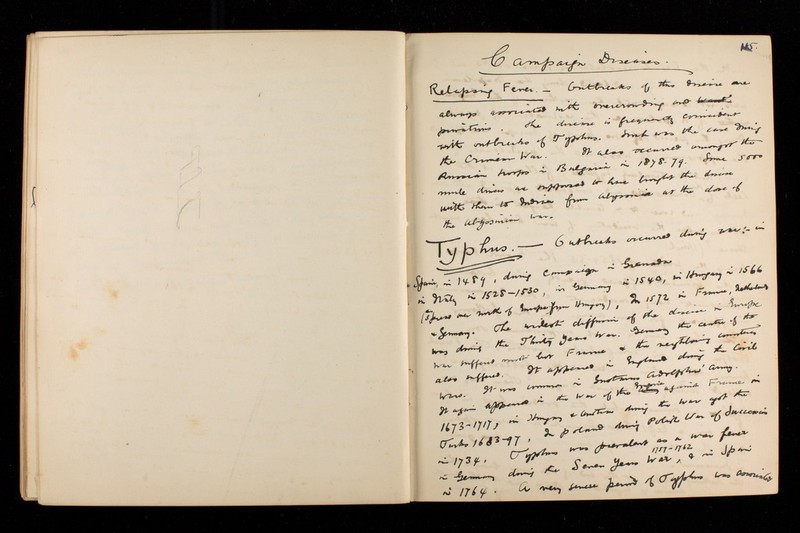 115
Campaign Diseases.
Relapsing Fever. — Outbreaks of this disease are
always associated with overcrowding and
privations. The disease is frequently coincident
with outbreaks of Typhus. Such was the case during
the Crimean War. It also occurred amongst the
Russian troops in Bulgaria in 1878-79. Some 5000
mule drivers are supposed to have brought the disease
with them to India from Abyssinia at the close of
the Abyssinian war.
Typhus. — Outbreaks occurred during war:- in
Spain, in 1489, during campaign in Granada
in Italy in 1528-1530, in Germany in 1540, in Hungary in 1566
(Spread over north of Europe from Hungary), In 1572 in France, Netherlands
& Germany. The widest diffusion of the disease in Europe
was during the Thirty Years War. Germany the centre of the
war suffered most but France & the neighbouring countries
also suffered. It appeared in England during the Civil
Wars. It was common in Gustavus Adolphus' army.
It again appeared in the War of the Empire against France in
1673-1717, in Hungary & Austria during the war against the
Turks 1683-97, In Poland during Polish War of Succession
in 1734. Typhus was prevalent as a war fever
in Germany during the Seven Years War, 1757-1762 & in Spain
in 1764. A very severe period of Typhus was associated